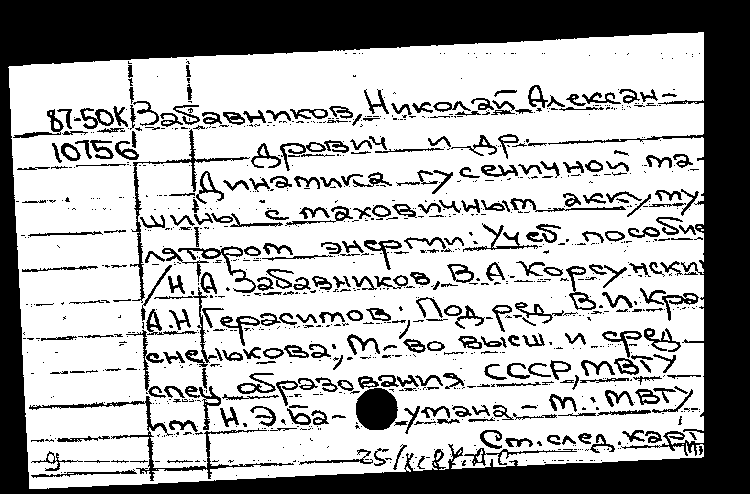 87-50К Забавников, Николай Алексан-
10756 дрович и др.
Динамика гусеничной ма-
шины с маховичным аккуму-
лятором энергии: Учеб. пособие
/Н.А.Забавников, В.А.Корсунский
А.Н.Герасимов; Под ред. В.И.Кра-
сненькова; М-во высш. и сред.
спец. образования СССР, МВТУ
им. Н.Э.Ба- умана. - М.: МВТУ,
См.след.карт
9